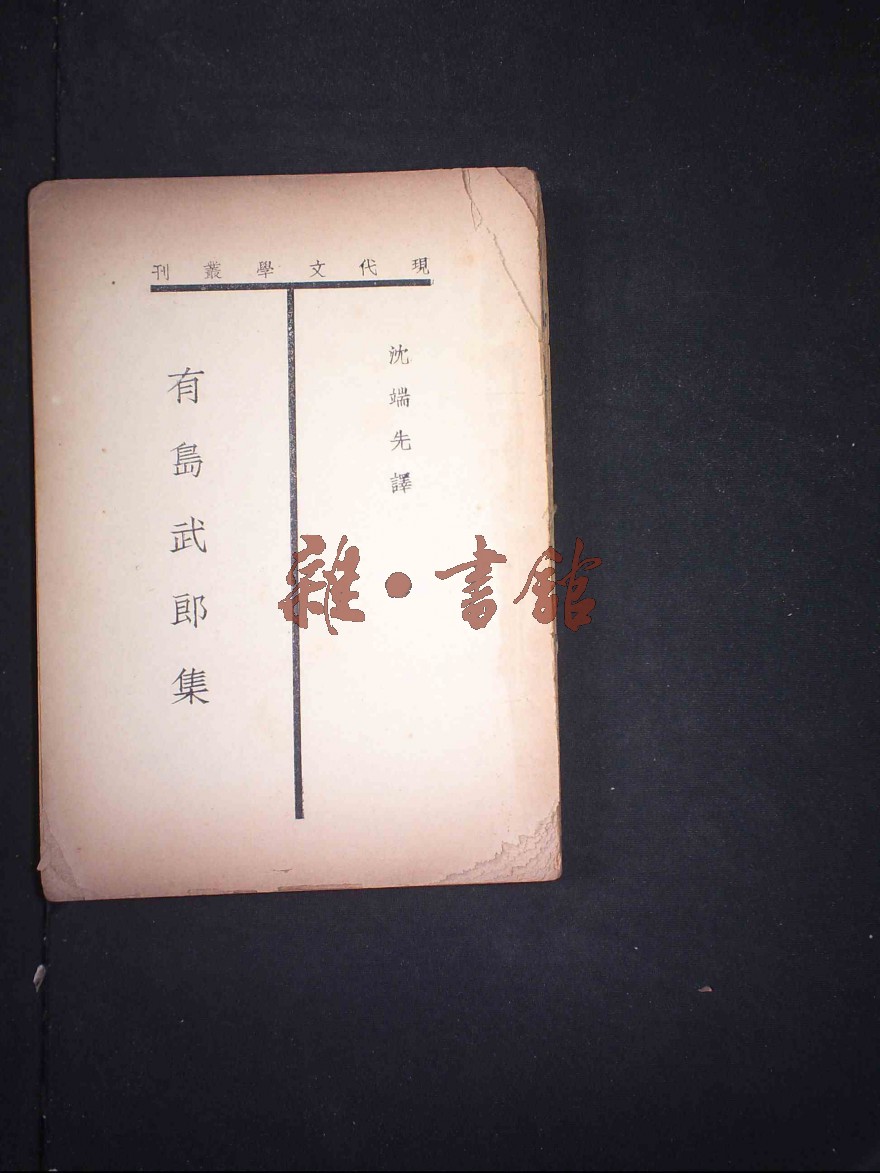 現代文學叢刊
沈端先譯
有島武郎集
雜·書館